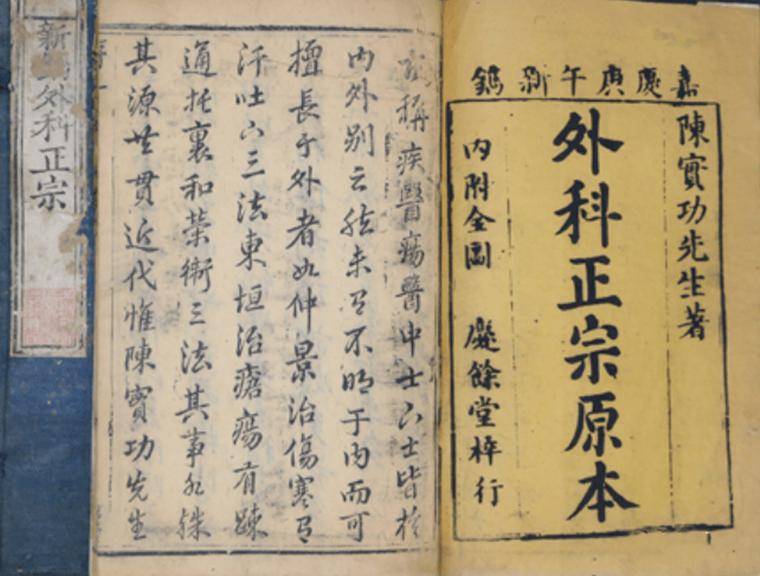 嘉慶庚午新鐫
陳實功先生著
外科正宗原本
內附全圖 慶餘堂梓行
稱疾醫瘍醫中士下士皆於
內外別云然未有不明于內而可
擅長于外者如仲景治傷寒有
汗吐下三法東垣治瘡瘍有疎
通托裏和榮衛三法其事殊
其源貫近代惟陳實功先生
新外科正宗